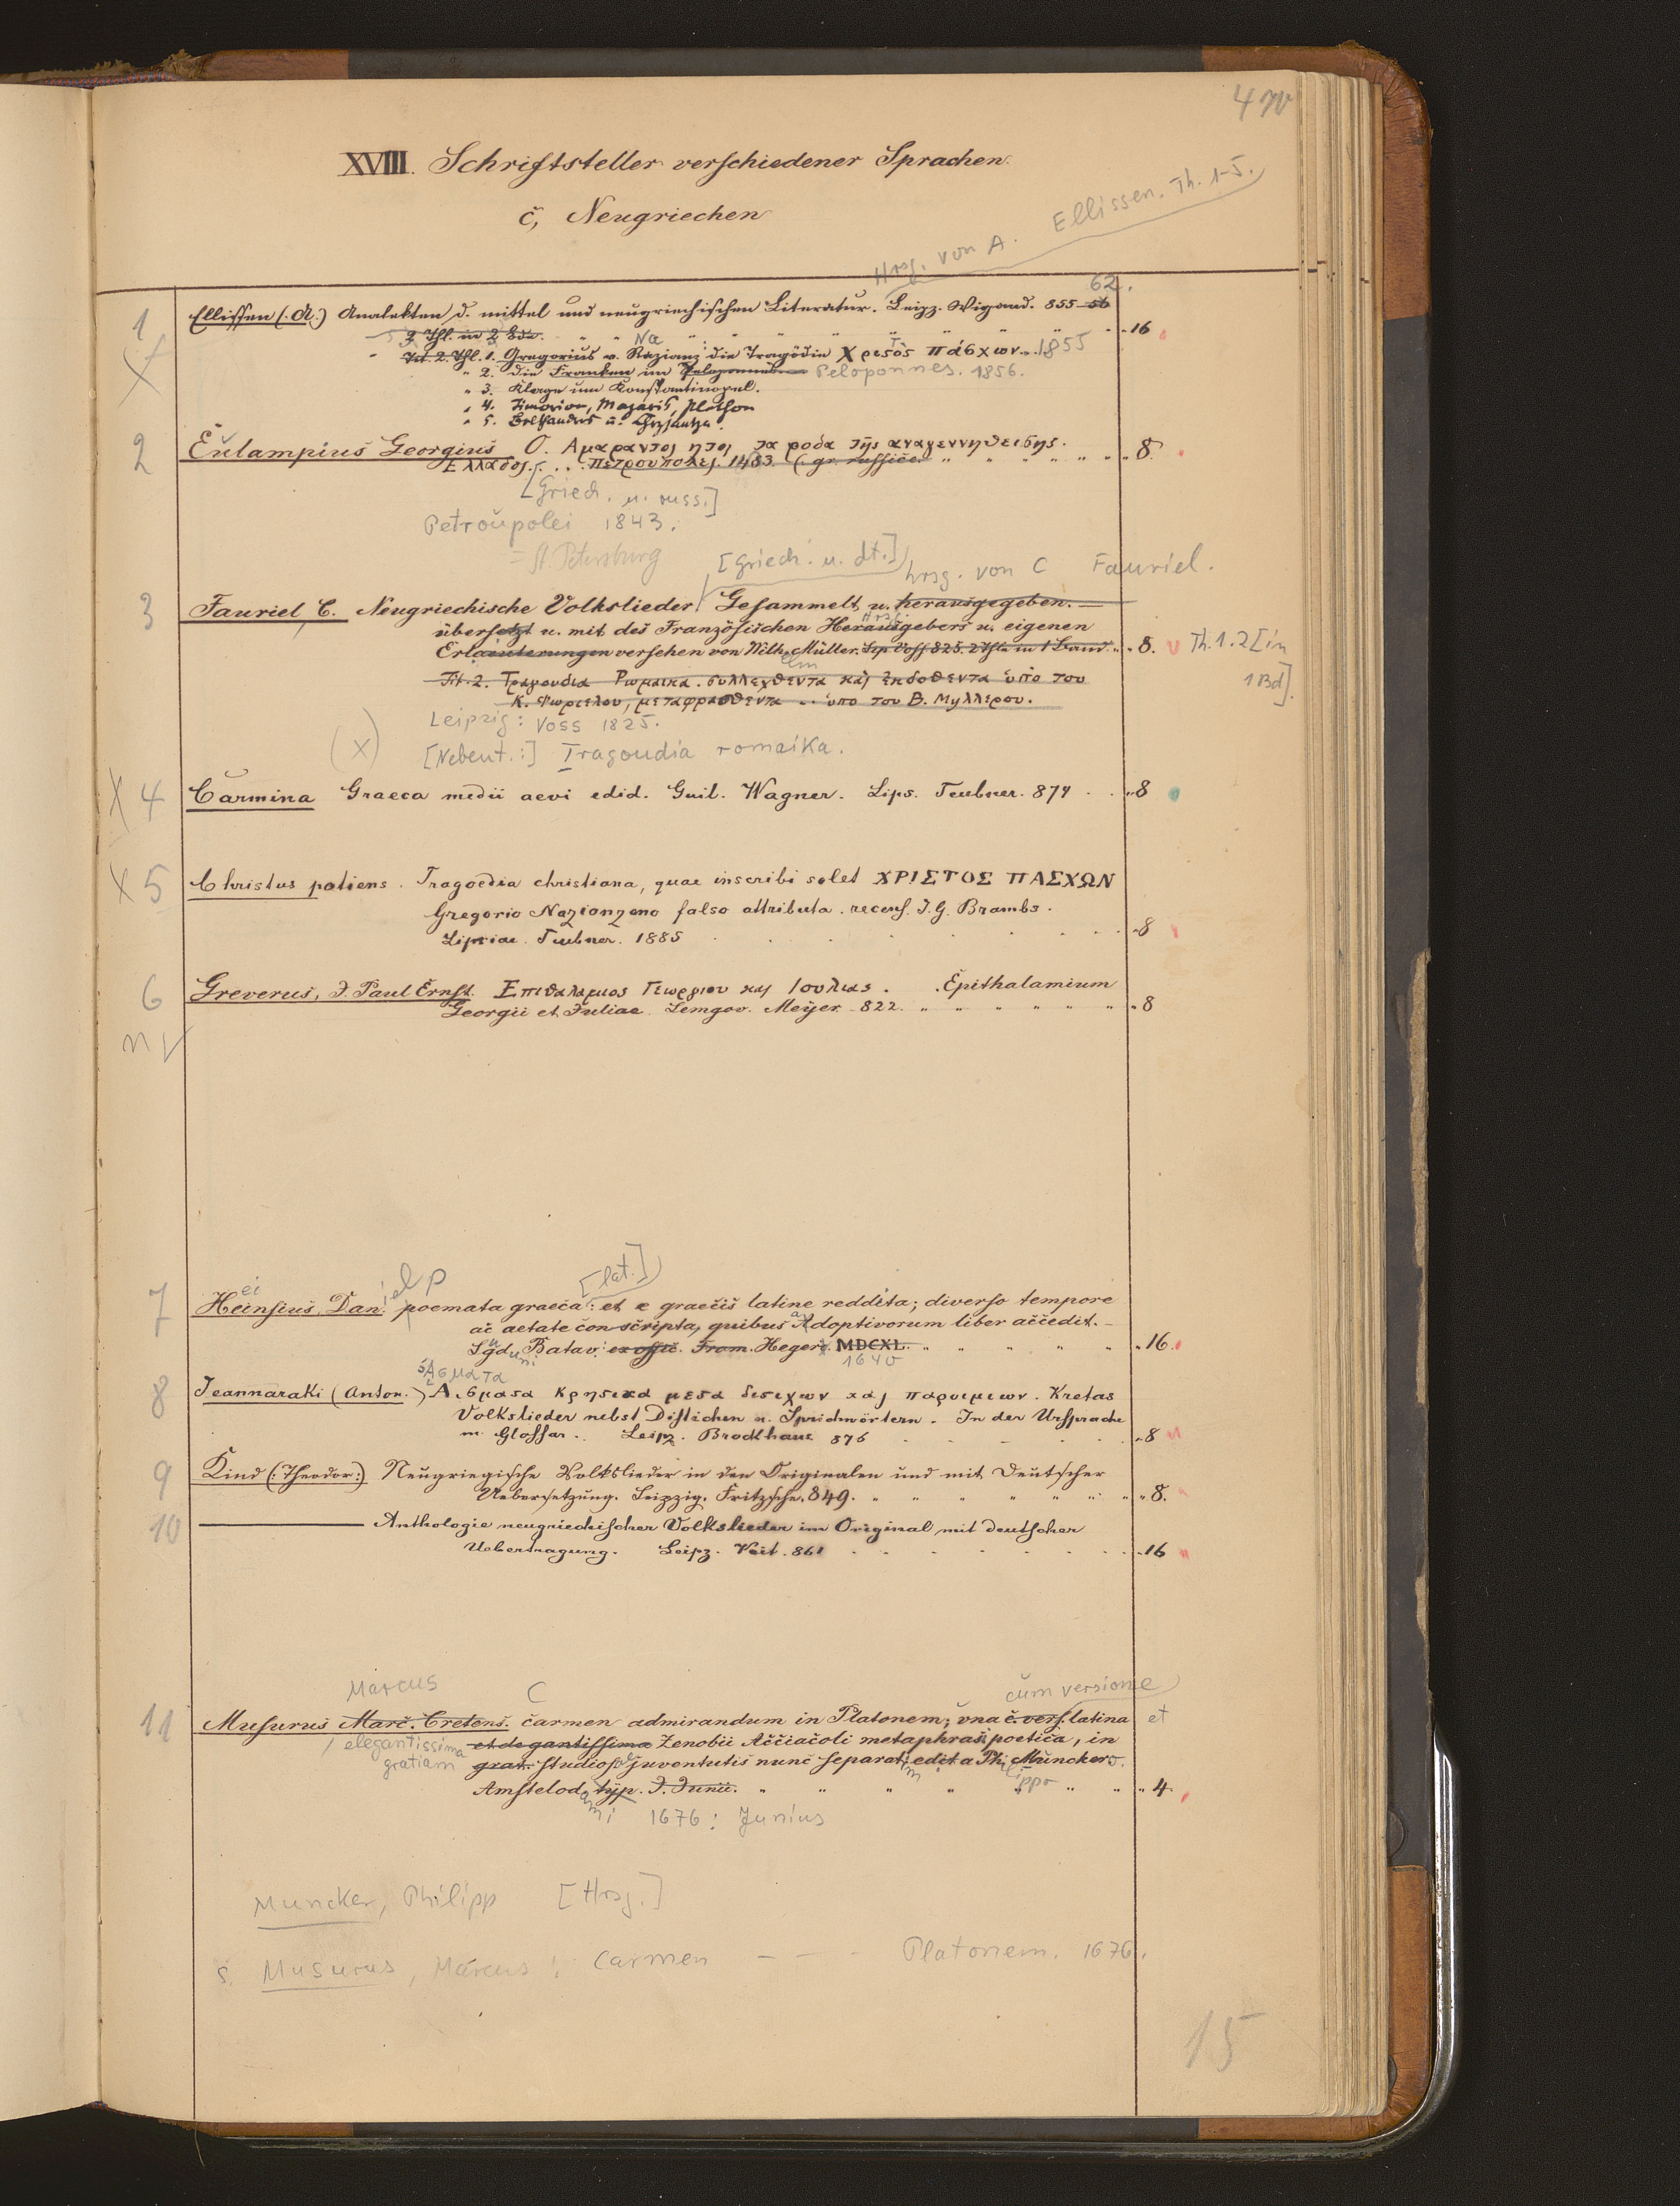 470
XVIII. Schriftsteller verschiedener Sprachen.
c, Neugriechen
Hrsg. von A. Ellissen. Th. 1-5.
62.
1 Ellissen (: A.) Analekten d. mittel und neugriechischen Literatur. Leipz. Wigand. 855-56
2 Thl. in 2 Bde. 16
Tit. 2. Thl. 1. Gregorius v. Nazianz die Tragödie Χριστὸς πάσχων. 1855
" 2. die Franken im Peloponnes. 1856.
" 3. Klage um Konstantinopel.
" 4. Timarion, Mazaris, Plethon
" 5. Belthandros u. Chrysantza.
2 Eulampius Georgius Ο. Αμαραντος ητοι τα ροδα της αναγεννηθεισης. 8.
Ελλαδος. ... Πετρουπολει. 1483. (. gr. russice.
[Griech. u. russ.]
Petroupolei 1843.
= St. Petersburg
[Griech. u. dt.] hrsg. von C Fauriel.
3 Fauriel, C. Neugriechische Volkslieder Gesammelt u. herausgegeben.
übersetzt u. mit des Französischen Herausgebers u. eigenen
Erlaeuterungen versehen von Wilh. Müller. Lpz Voss 825. 2 Thle in 1 Band. 8. Th. 1.2 [in
1 Bd].
Tit. 2. Τραγουδια Ρωμαικα. συλλεχθεντα και εκδοθεντα ὑπο του
Κ. Φωριελου, μεταφρασθεντα .. ὑπο του Β. Μυλλερου.
Leipzig: Voss 1825.
(X) [Nebent.:] Tragoudia romaika.
X 4 Carmina Graeca medii aevi edid. Guil. Wagner. Lips. Teubner. 874 8
X 5 Christus patiens. Tragoedia christiana, quae inscribi solet ΧΡΙΣΤΟΣ ΠΑΣΧΩΝ
Gregorio Nazianzeno falso attributa. recens. I. G. Brambs.
Lipsiae. Teubner. 1885 8
6 Greverus, J. Paul Ernst. Επιθαλαμιος Γεωργιου και Ιουλιας. Epithalamium
Georgii et Juliae. Lemgov. Meyer. 822. 8
[lat.]
7 Heinsius, Dan. poemata graeca: et e graecis latine reddita; diverso tempore
ac aetate conscripta, quibus Adoptivorum liber accedit.
Lgd. Batav. ex offic. From. Heger. MDCXL. 16.
1640
Ασματα
8 Jeannaraki (Anton.) Αισματα Κρητικα μετα διστιχων και παροιμιων. Kretas
Volkslieder nebst Distichen u. Sprichwörtern. In der Ursprache
m. Glossar. Leipz. Brockhaus 876 8
9 Kind (: Theodor:) Neugriegische Volkslieder in den Originalen und mit Deutscher
Uebersetzung. Leipzig. Fritzsche. 849. 8.
10 Anthologie neugriechischer Volkslieder im Original mit deutscher
Uebertragung. Leipz. Veit. 861 16
Marcus C cum versione
11 Musurus Marc. Cretens. carmen admirandum in Platonem; una c. vers. latina et
elegantissima et elegantissima Zenobii Acciacoli metaphrasi poetica, in
gratiam grat. studiosae juventutis nunc separatim edit a Ph. Munckero.
Amstelod. typ. J. Junii. 4.
1676: Junius
Muncker, Philipp [Hrsg.]
s. Musurus, Marcus: Carmen - - - Platonem. 1676.
15